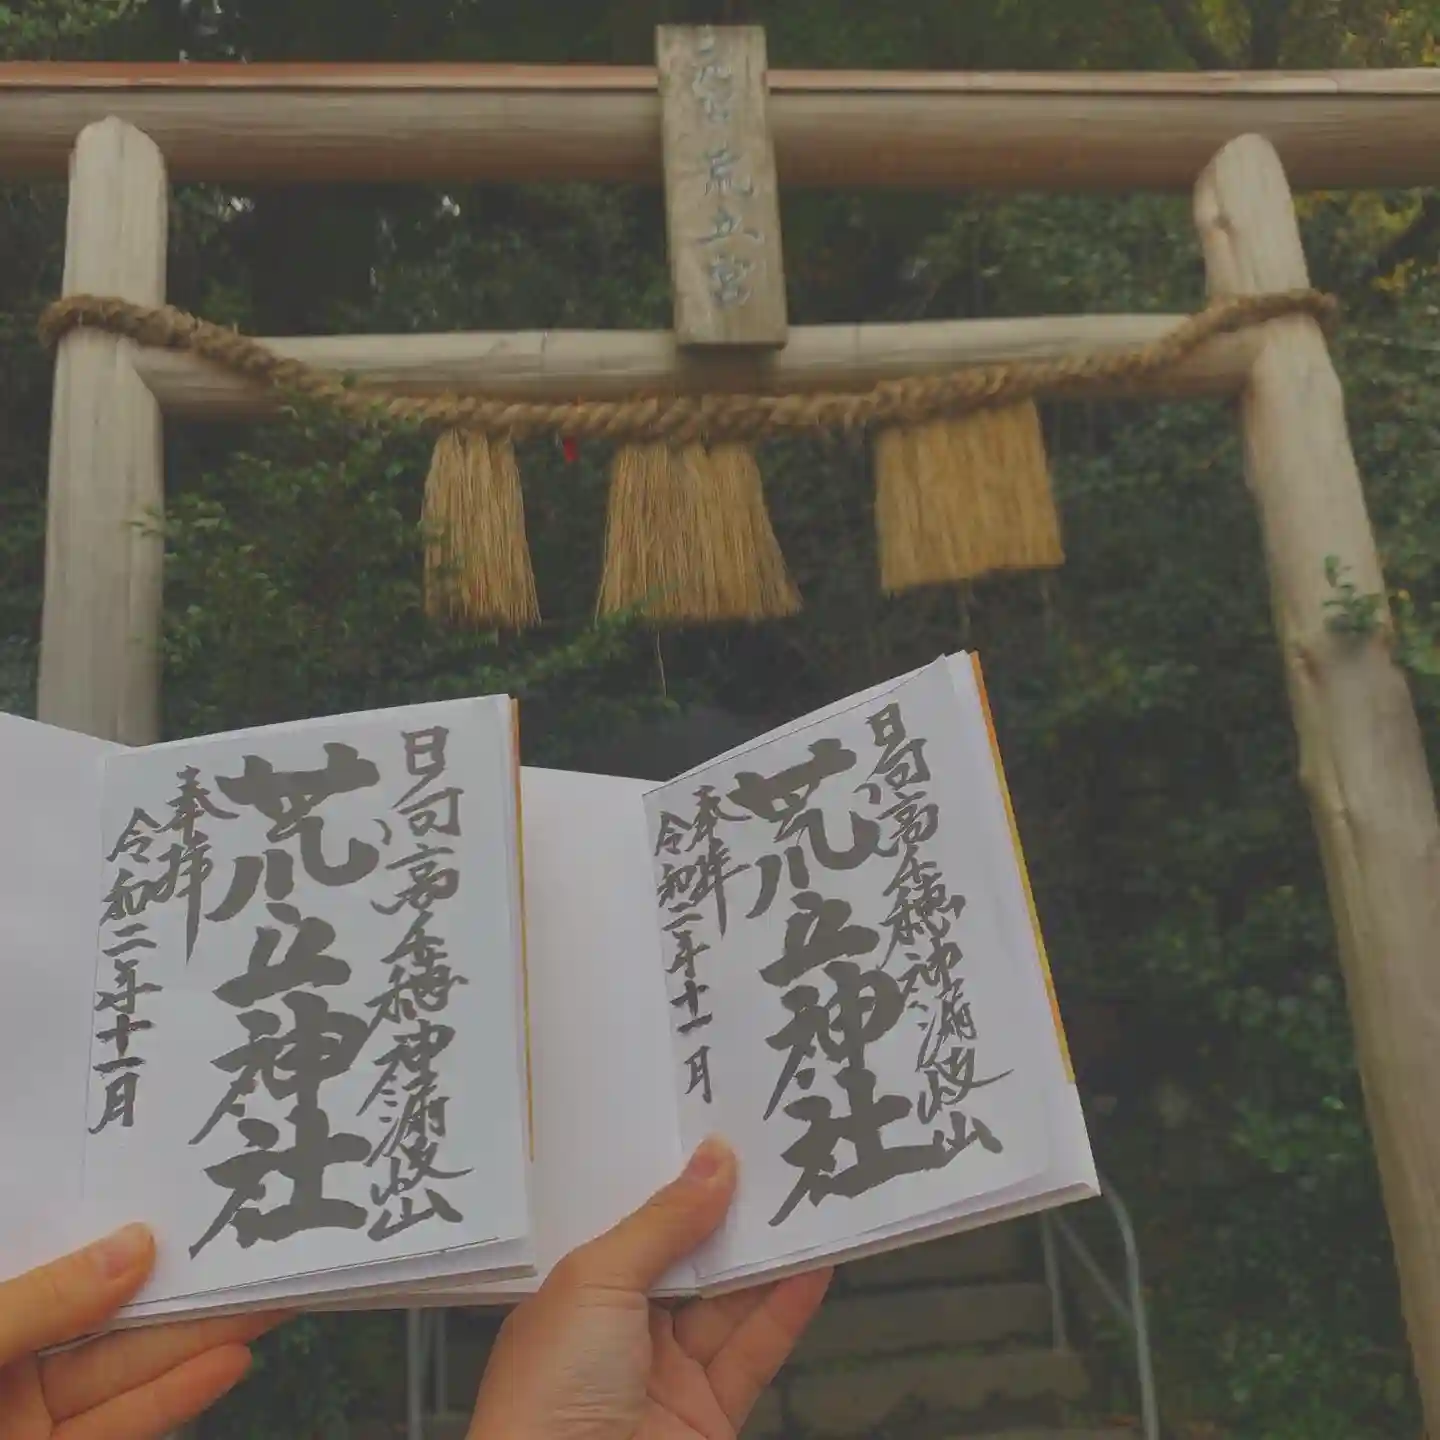 元宮荒立宮
日向高千穂神漏岐山
荒立神社
奉拝
令和二年十一月
日向高千穂神漏岐山
荒立神社
奉拝
令和二年十一月